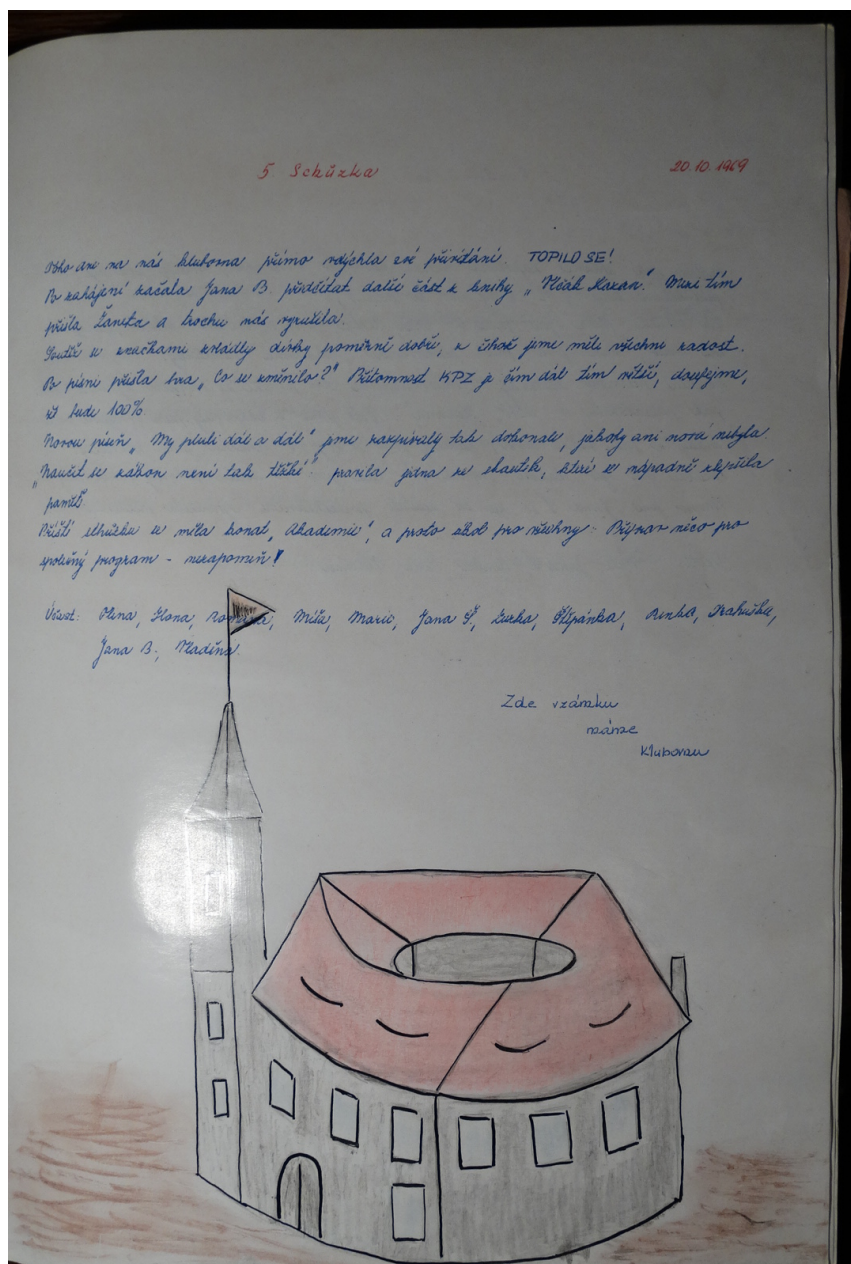 5. Schůzka 20.10.1969
ani na nás klubovna přímo vdýchla své přivítání. TOPILO SE!
Po zahájení začala Jana B. předčítat další část z knihy „Vlčák Kazan". Mezi tím
přišla Žaneta a trochu nás vyrušila.
Soutěž se značkami zvládly dívky poměrně dobře, z čehož jsme měli všechni radost.
Po písni přišla hra „Co se změnilo?" Přítomnost KPZ je čím dál tím větší, doufejme,
že bude 100%.
Novou píseň „My pluli dál a dál" jsme nazpívaly tak dokonale, jakoby ani nová nebyla.
„Naučit se zákon není tak těžké" pravila jedna ze skautek, které se nápadně zlepšila
paměť.
Příští schůzku se měla konat „Akademie", a proto úkol pro všechny: Připrav něco pro
společný program - nezapomeň!
Účast: Olina, Ilona, Romana, Míša, Marie, Jana Š, Zuzka, Štěpánka, Renka,
Jana B., Vladěna.
Zde vzániku
máme
Klubovnu